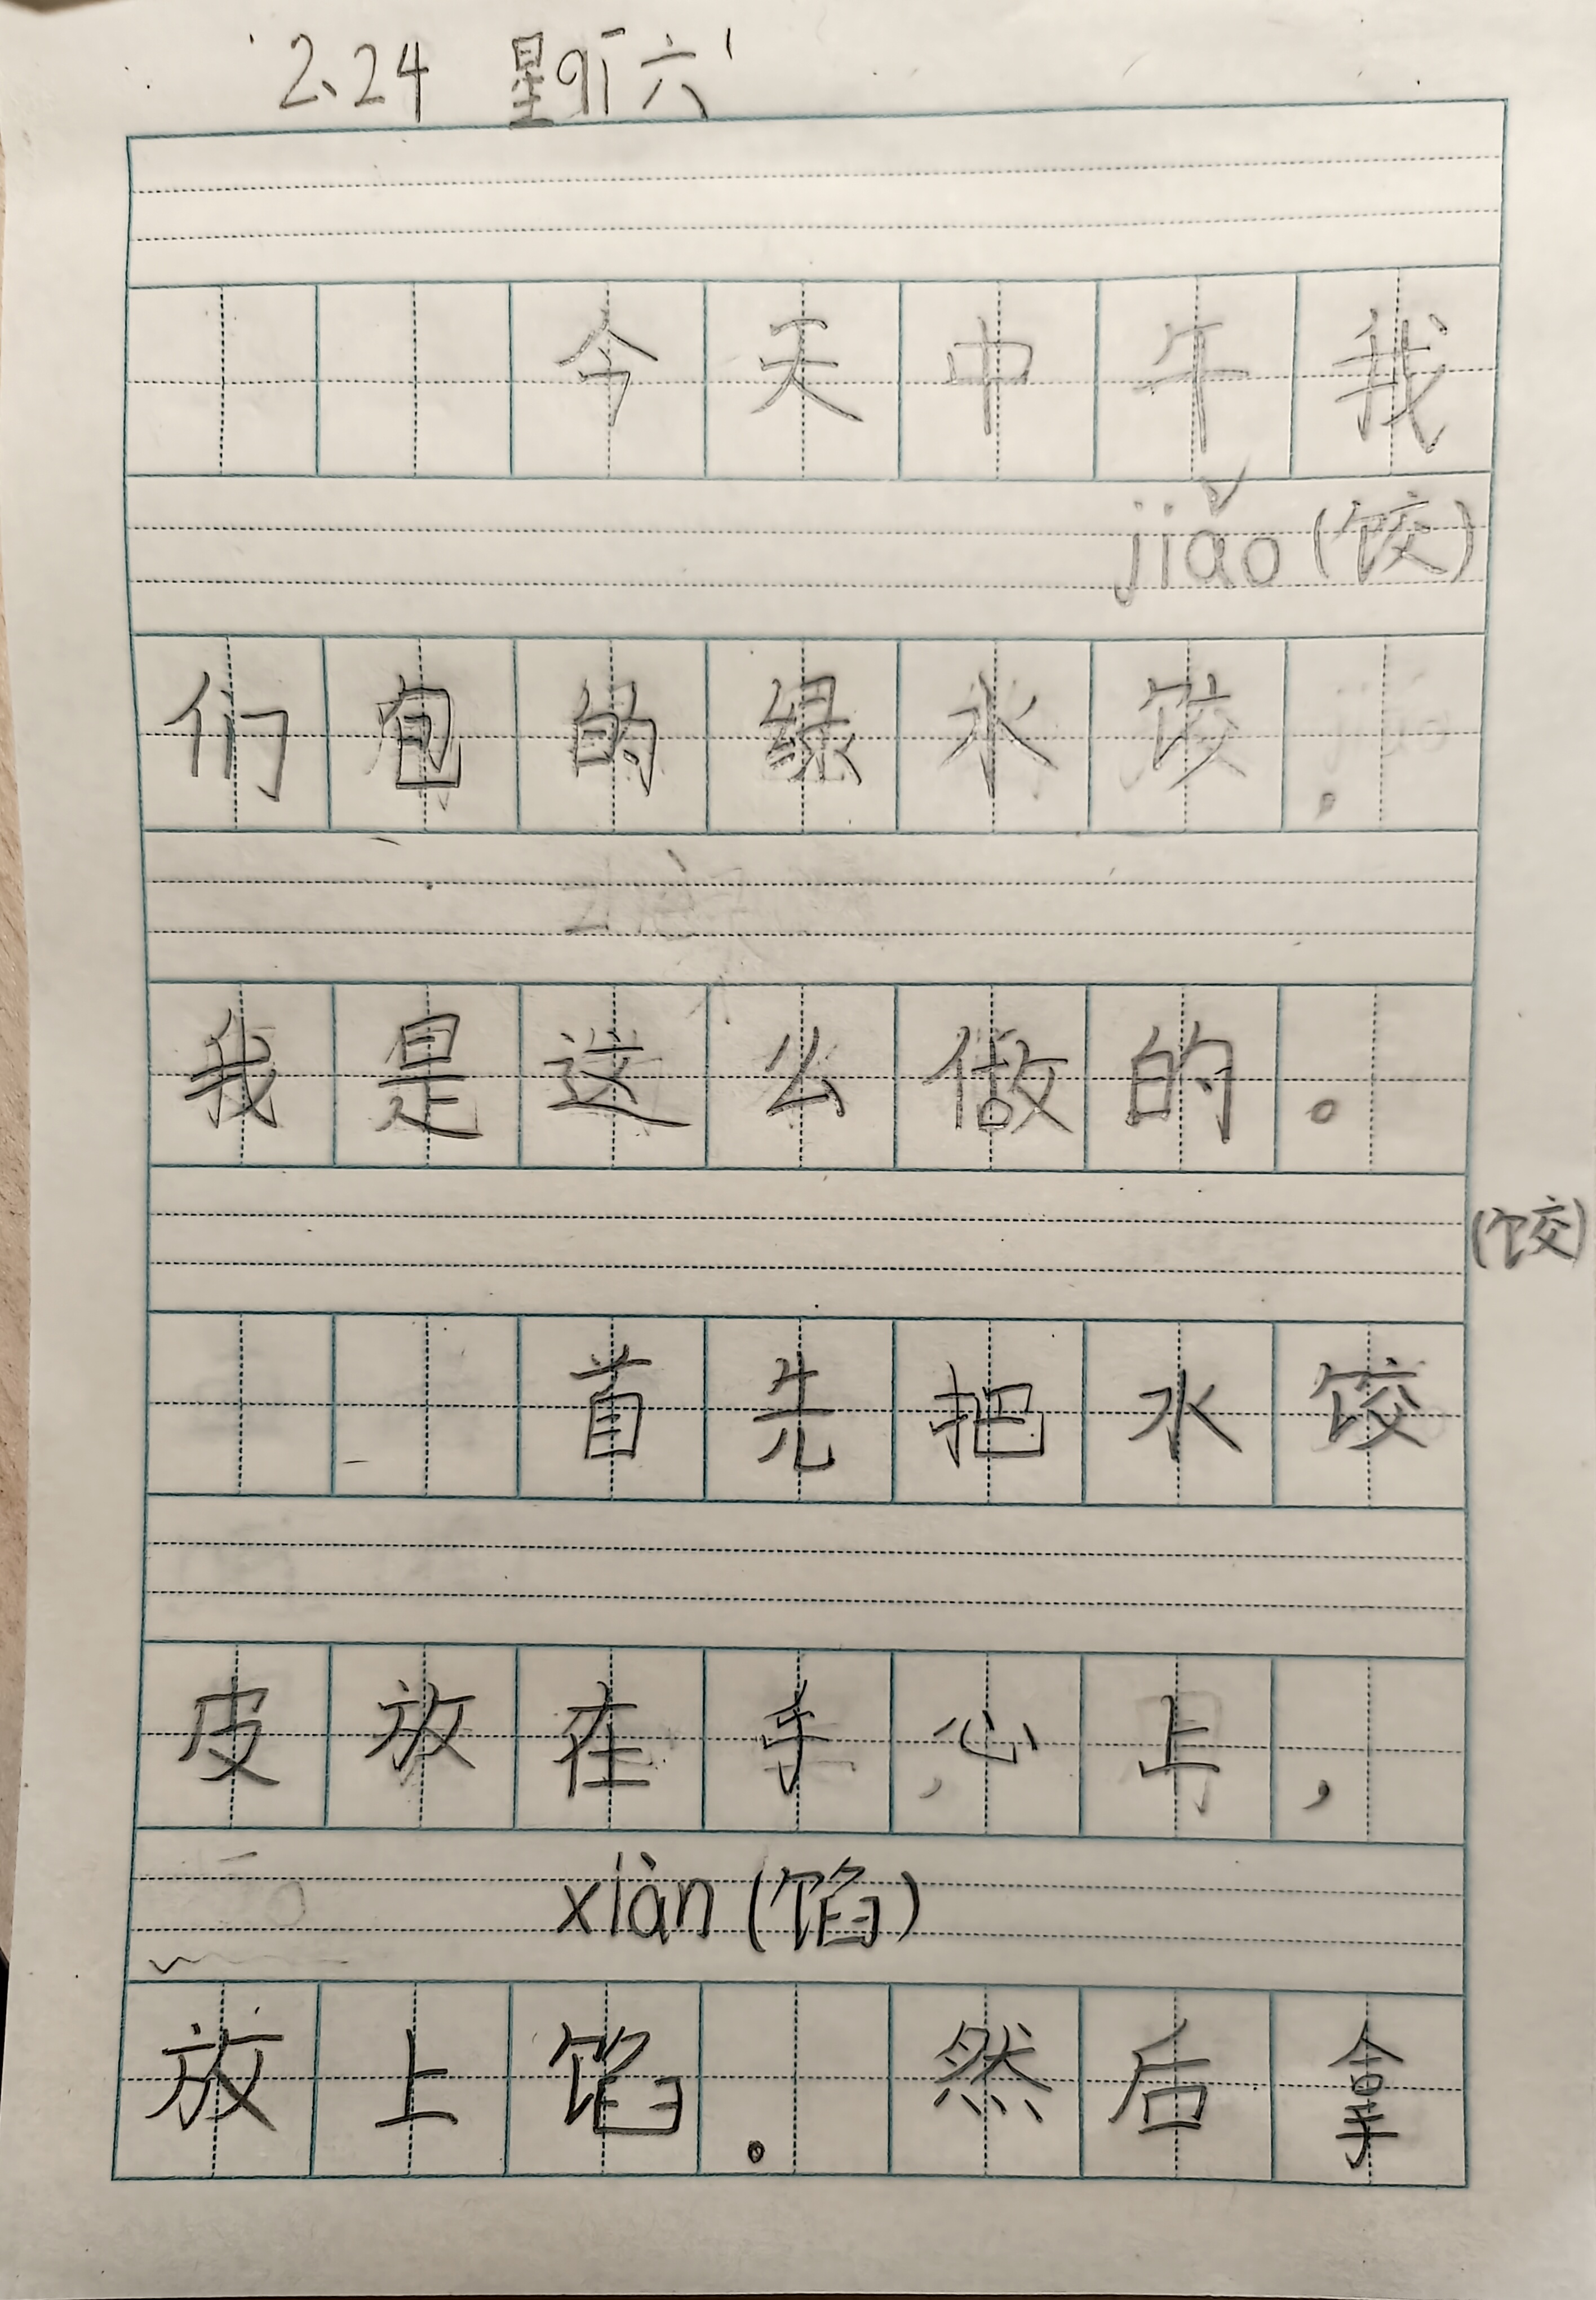 2.24 星qī六
今天中午我
jiǎo(饺)
们包的绿水饺。
我是这么做的。
(饺)
首先把水饺
皮放在手心上,
xiàn(馅)
放上馅。然后拿